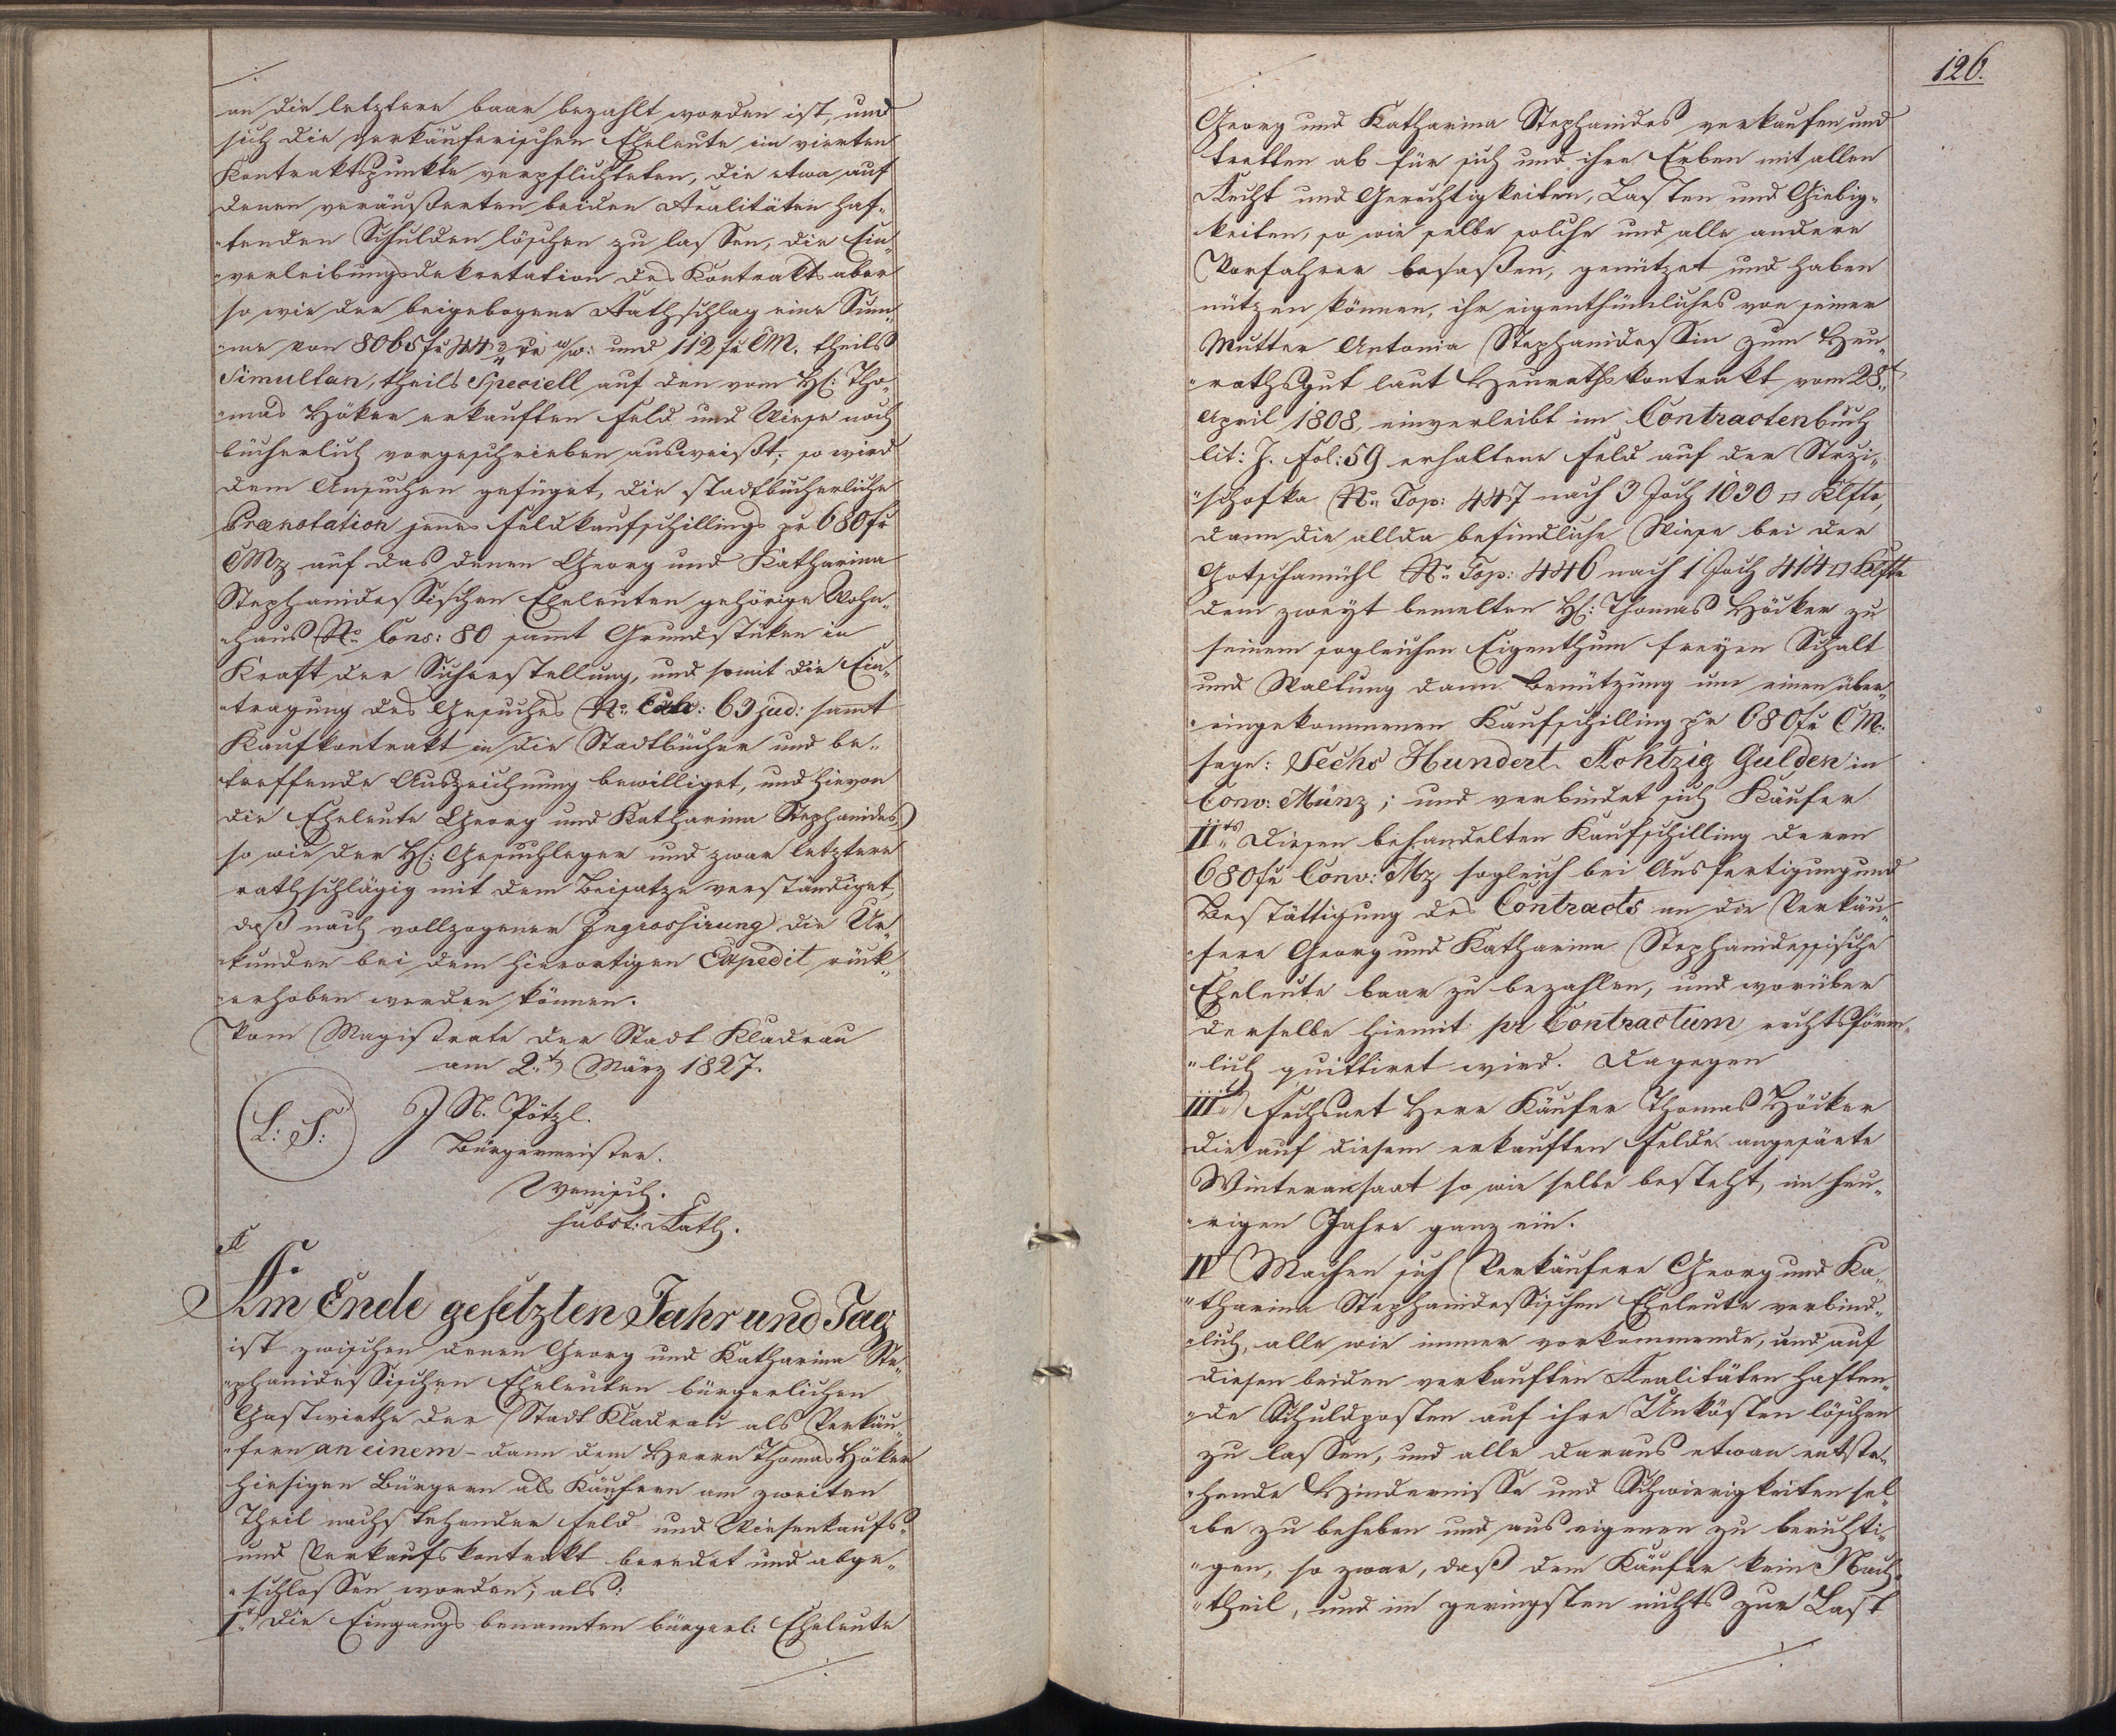 an die letztere baar bezahlt worden ist, und
sich die verkäuferischen Eheleute im vierten
Kontraktspunkte verpflichteten, die etwa auf
denen veräußerten beiden Realitäten haf-
tenden Schulden löschen zu lassen, die Ein-
verleibungsdekretation des Kontrakts aber
so wie der beigebogene Rathschlag eine Sum-
me von 8065 fr 44 3/4 xr w/w: und 112 fr CM. theils
Simultan, theils Speciell auf den vom H: Tho-
mas Höker erkauften Feld und Wiese noch
bücherlich vorgeschrieben ausweißt; so wird
dem Ansuchen gefüget, die stadtbücherliche
Prænotation jenes Feldkaufschillings pr 680 fr
CMz auf das denen Georg und Katharina
Stephanidessischen Eheleuten gehörige Wohn-
haus No Cons: 80 samt Grundstüken in
Kraft der Sicherstellung, und somit die Ein-
tragung des Gesuches No Exh: 63 jud: sammt
Kaufkontrakt in die Stadtbücher und be-
treffende Auszeichnung bewilliget, und hievon
die Eheleute Georg und Katharina Stephanides,
so wie der H: Gesuchleger und zwar letzterer
rathschlägig mit dem Beisatze verständiget,
daß nach vollzogener Ingrossirung die Ur-
kunden bei dem hierortigen Expedit rück-
erhoben werden können.
Vom Magistrate der Stadt Kladrau
am 2t März 1827.
L: S: J N. Pötzl.
Bürgermeister.
Wenisch.
subst: Rath.
Am Ende gesetzten Jahr und Tag
ist zwischen denen Georg und Katharina Ste-
phanidessischen Eheleuten bürgerlichen
Gastwirthe der Stadt Kladrau als Verkäu-
fern an einem - dann dem Herrn Thomas Höker
hiesigen Bürgern als Käufern am zweiten
Theil nachstehender Feld- und Wiesenkaufs-
und Verkaufskontrakt beredet und abge-
schlossen worden; als:
I. die Eingangs benannten bürgerl: Eheleute
126.
Georg und Katharina Stephanides verkaufen und
tretten ab für sich und ihre Erben mit allen
Recht und Gerechtigkeiten, Lasten und Giebig-
keiten, so wie selbe solche und alle andere
Vorfahrer besaßen, genützet und haben
nützen können, ihr eigenthümliches von seiner
Mutter Antonia Stephanidessin zum Heu-
rathsgut laut Heurathskontrakt vom 28t
April 1808, einverleibt im Contractenbuch
lit: J. Fol: 59 erhaltene Feld auf der Strzi-
schofka No Top: 447 nach 3 Joch 1030 □ Klfte,
dann die allda befindliche Wiese bei der
Gotschamühl No Top: 446 nach 1 Joch 414 □ Klfte
dem zweyt bemelten H: Thomas Höcker zu
seinem sogleichen Eigenthum freyen Schalt
und Waltung dann Benützung um einen über-
eingekommenen Kaufschilling pr 680 fr CM.
sage: Sechs Hundert Achtzig Gulden in
Conv: Münz; und verbindet sich Käufer
IIts Diesen behandelten Kaufschilling deren
680 fr Conv: Mz sogleich bei Ausfertigung und
Bestättigung des Contracts an die Verkäu-
fere Georg und Katharina Stephanidessische
Eheleute baar zu bezahlen, und worüber
derselbe hiemit pr Contractum rechtsförm-
lich quittiret wird. Dagegen
III. Fechsnet Herr Käufer Thomas Höcker
die auf diesem erkauften Felde angesäete
Winteransaat so wie selbe besteht, im heu-
rigen Jahre ganz ein.
IV Machen sich Verkäufere Georg und Ka-
tharina Stephanidessischen Eheleute verbind-
lich, alle wie immer vorkommende, und auf
diesen beiden verkauften Realitäten haften-
de Schuldposten auf ihre Unkösten löschen
zu lassen, und alle daraus etwan entste-
hende Hindernisse und Schwierigkeiten sel-
be zu beheben und aus eigenen zu berichti-
gen, so zwar, daß dem Käufer kein Nach-
theil, und im geringsten nichts zur Last